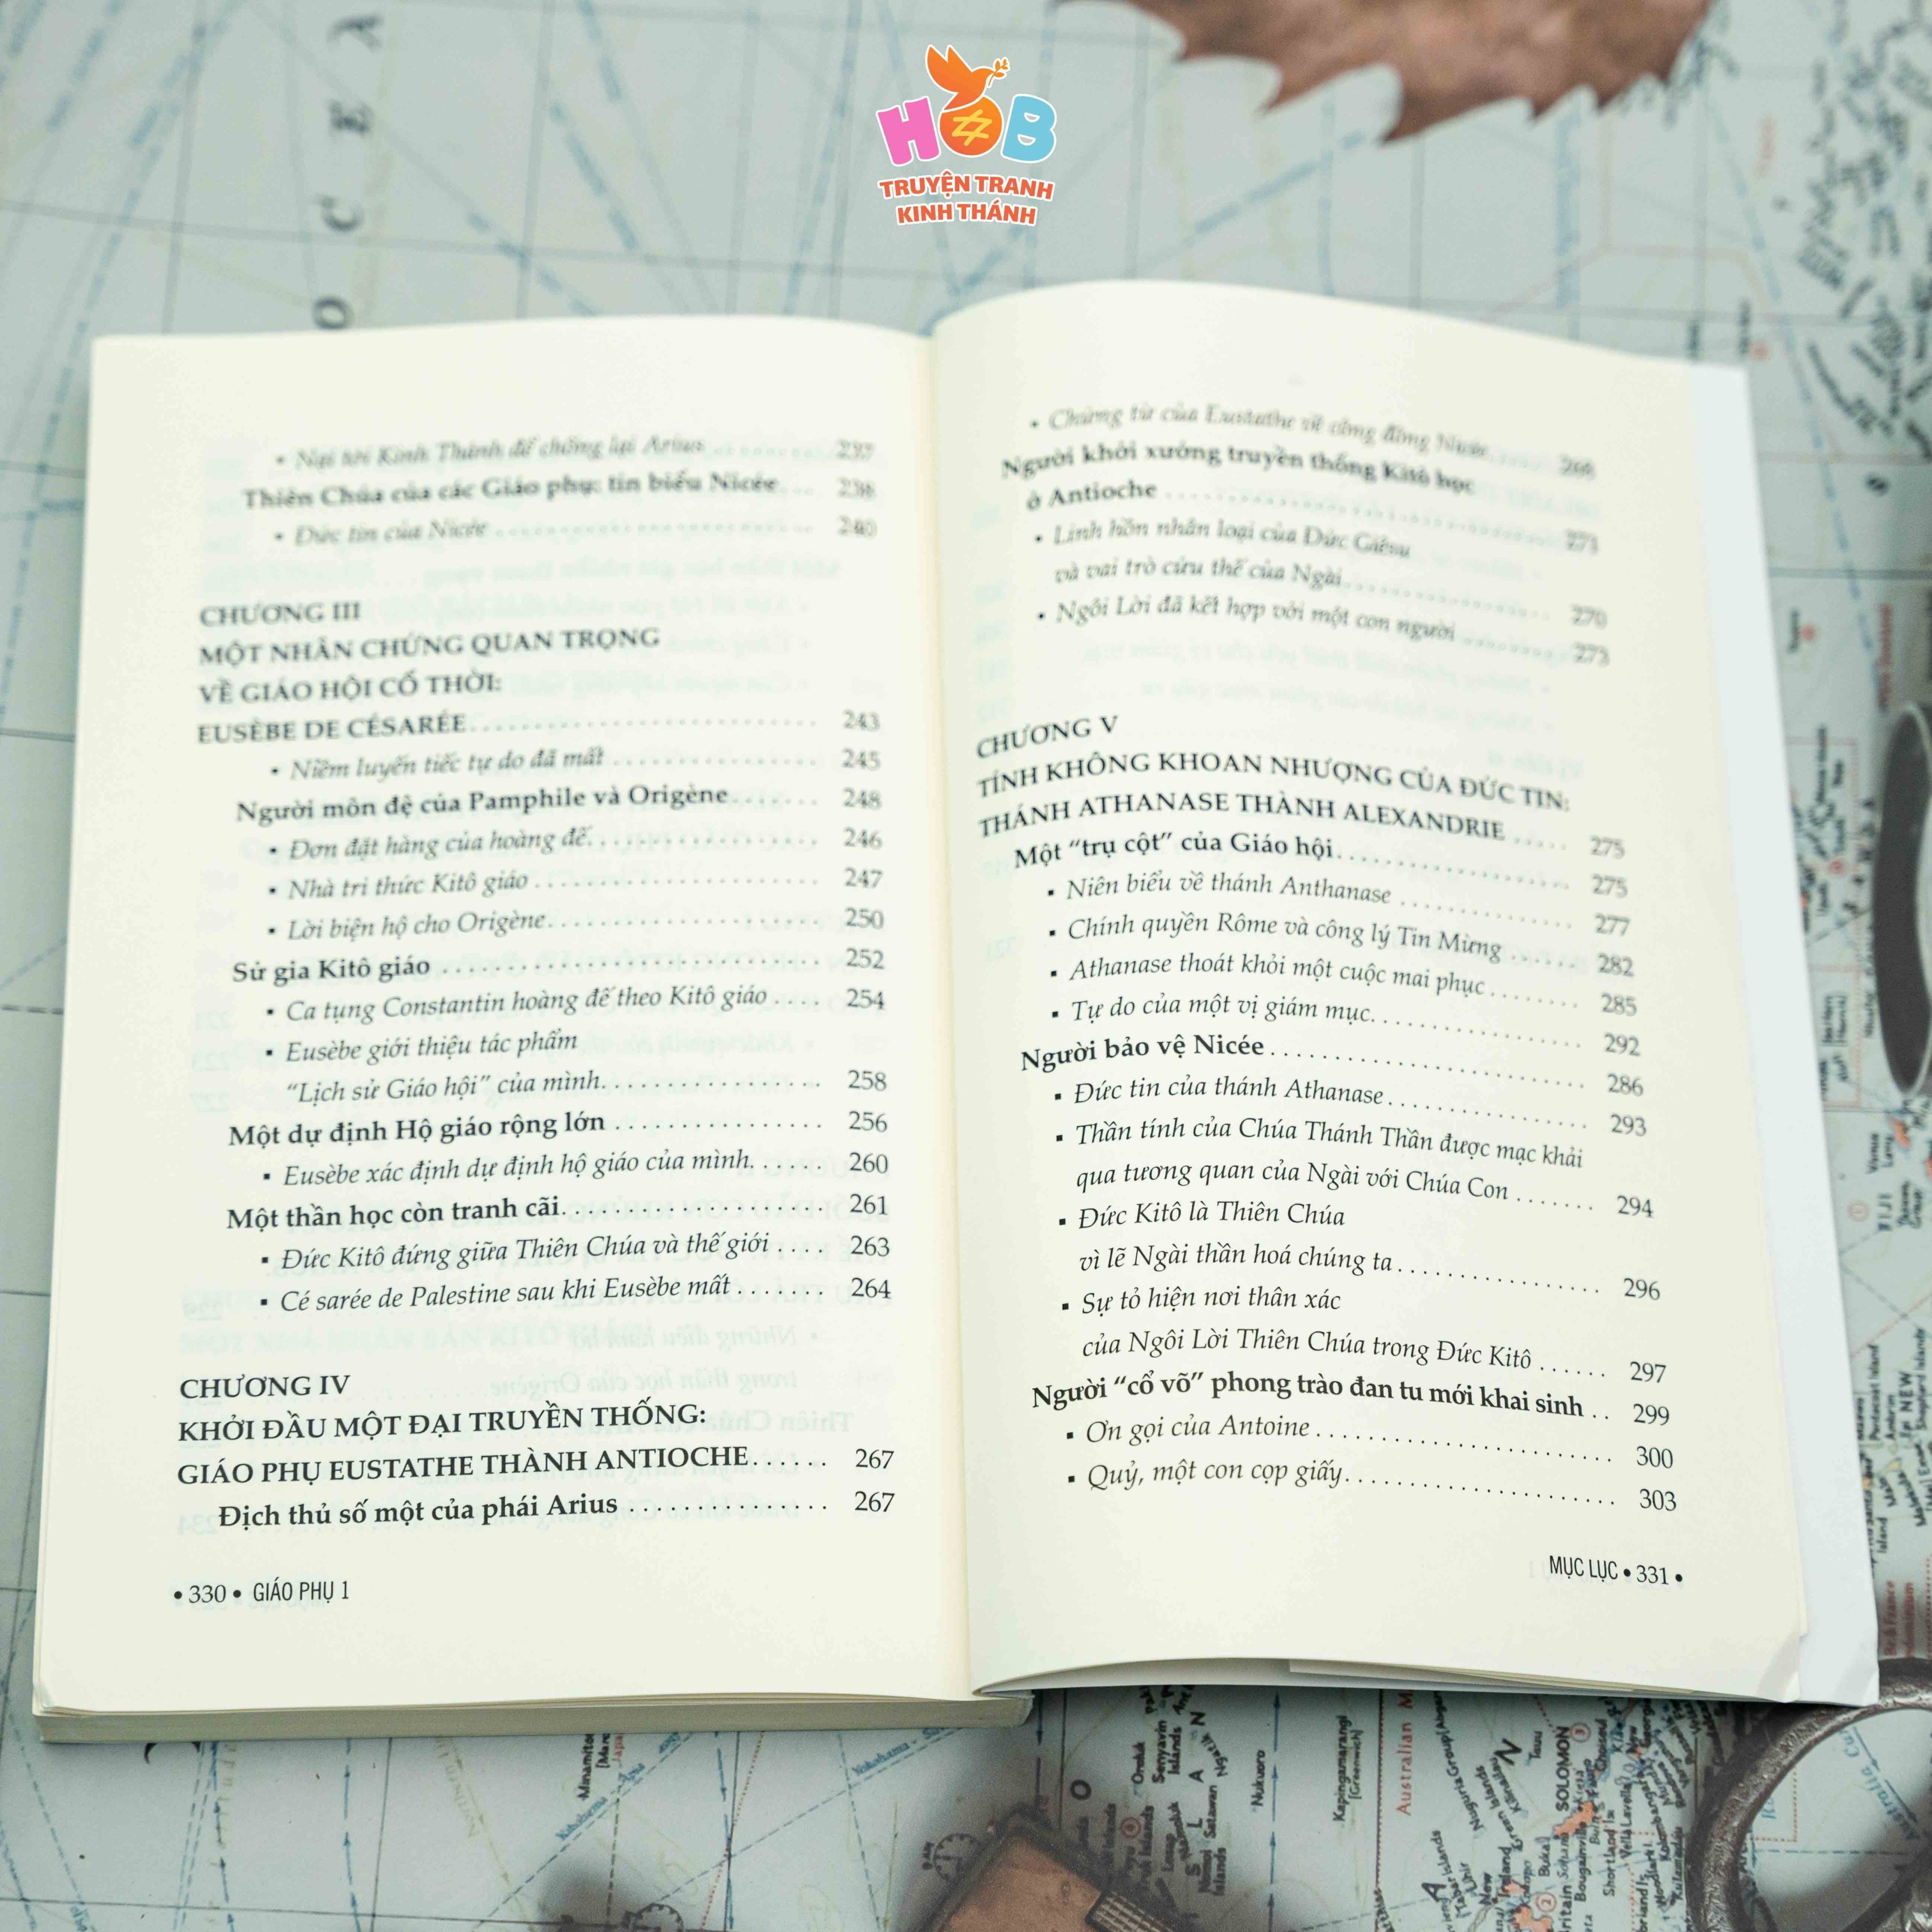 HOB
TRUYỆN TRANH
KINH THÁNH
O C E A
▪ Nại tới Kinh Thánh để chống lại Arius ........ 237
Thiên Chúa của các Giáo phụ: tin biểu Nicée.... 238
▪ Đức tin của Nicée ........ 240
CHƯƠNG III
MỘT NHÂN CHỨNG QUAN TRỌNG
VỀ GIÁO HỘI CỔ THỜI:
EUSÈBE DE CÉSARÉE........ 243
▪ Niềm luyến tiếc tự do đã mất ........ 245
Người môn đệ của Pamphile và Origène........ 248
▪ Đơn đặt hàng của hoàng đế........ 246
▪ Nhà tri thức Kitô giáo ........ 247
▪ Lời biện hộ cho Origène........ 250
Sử gia Kitô giáo ........ 252
▪ Ca tụng Constantin hoàng đế theo Kitô giáo .... 254
▪ Eusèbe giới thiệu tác phẩm
“Lịch sử Giáo hội” của mình........ 258
Một dự định Hộ giáo rộng lớn ........ 256
▪ Eusèbe xác định dự định hộ giáo của mình...... 260
Một thần học còn tranh cãi........ 261
▪ Đức Kitô đứng giữa Thiên Chúa và thế giới .... 263
▪ Cé sarée de Palestine sau khi Eusèbe mất ....... 264
CHƯƠNG IV
KHỞI ĐẦU MỘT ĐẠI TRUYỀN THỐNG:
GIÁO PHỤ EUSTATHE THÀNH ANTIOCHE...... 267
Địch thủ số một của phái Arius ........ 267
• 330 • GIÁO PHỤ 1
▪ Chứng từ của Eustathe về công đồng Nicée.....
Người khởi xướng truyền thống Kitô học
ở Antioche ........ 271
▪ Linh hồn nhân loại của Đức Giêsu
và vai trò cứu thế của Ngài........ 270
▪ Ngôi Lời đã kết hợp với một con người ........ 273
CHƯƠNG V
TÍNH KHÔNG KHOAN NHƯỢNG CỦA ĐỨC TIN:
THÁNH ATHANASE THÀNH ALEXANDRIE ..... 275
Một “trụ cột” của Giáo hội........ 275
▪ Niên biểu về thánh Anthanase ........ 277
▪ Chính quyền Rôme và công lý Tin Mừng ...... 282
▪ Athanase thoát khỏi một cuộc mai phục ........ 285
▪ Tự do của một vị giám mục........ 292
Người bảo vệ Nicée........ 286
▪ Đức tin của thánh Athanase........ 293
▪ Thần tính của Chúa Thánh Thần được mạc khải
qua tương quan của Ngài với Chúa Con ....... 294
▪ Đức Kitô là Thiên Chúa
vì lẽ Ngài thần hoá chúng ta........ 296
▪ Sự tỏ hiện nơi thân xác
của Ngôi Lời Thiên Chúa trong Đức Kitô ...... 297
Người “cổ võ” phong trào đan tu mới khai sinh .. 299
▪ Ơn gọi của Antoine ........ 300
▪ Quỷ, một con cọp giấy........ 303
MỤC LỤC • 331 •
Minamitori
Nukuoro
Kapingamarangi
[Greenwich]
Australian
SOLOMON